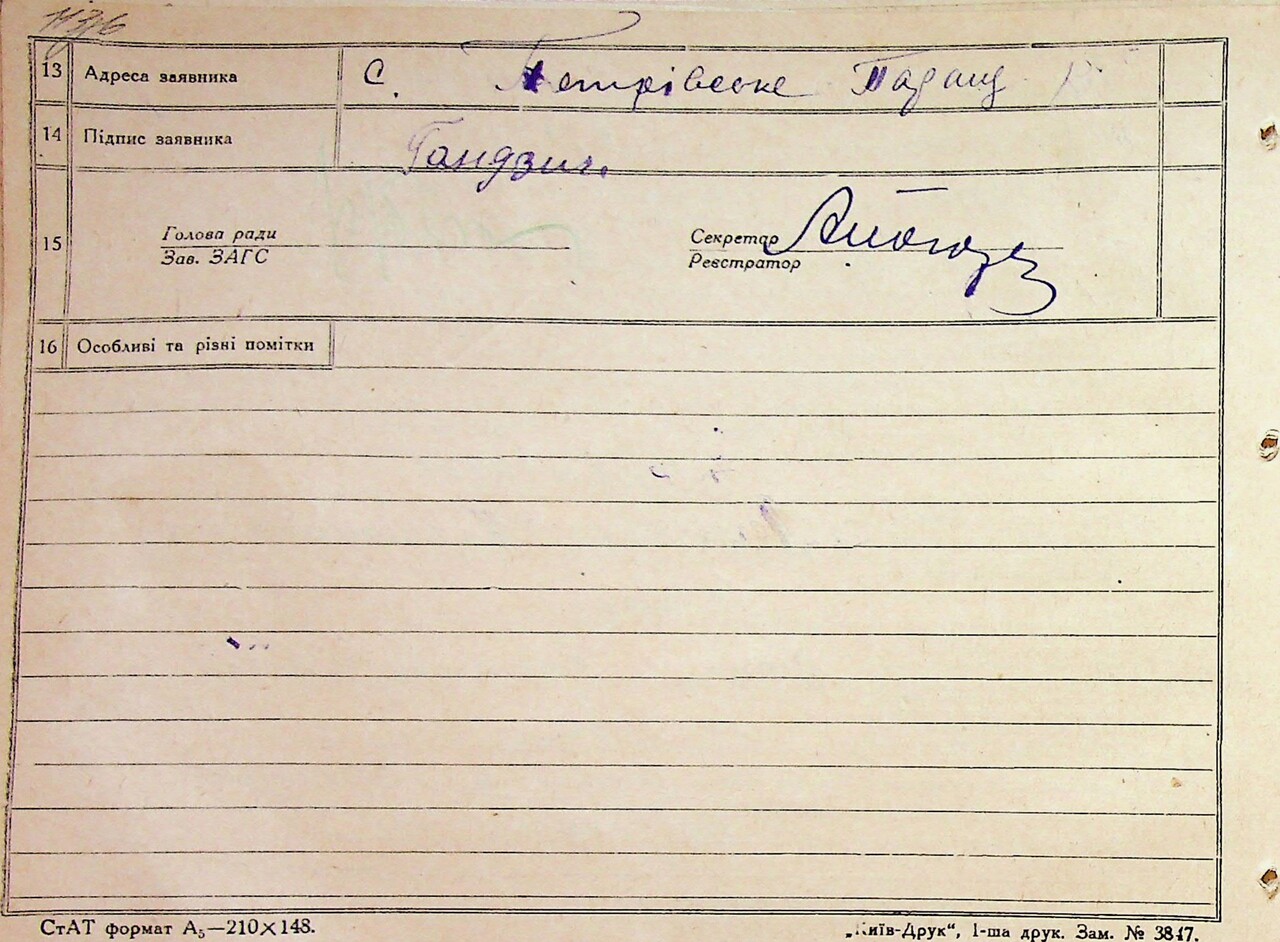 13 Адреса заявника с. Петрівське
14 Підпис заявника Гандзич.
15 Голова ради Секретар
Зав. ЗАГС Реєстратор
16 Особливі та різні помітки
СтАТ формат А₅—210×148. „Київ-Друк“, І-ша друк. Зам. № 3847.